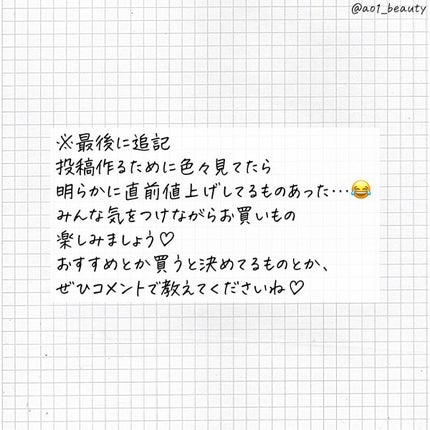 @ao1_beauty
※最後に追記
投稿作るために色々見てたら
明らかに直前値上げしてるものあった…😂
みんな気をつけながらお買いもの
楽しみましょう♡
おすすめとか買うと決めてるものとか、
ぜひコメントで教えてくださいね♡